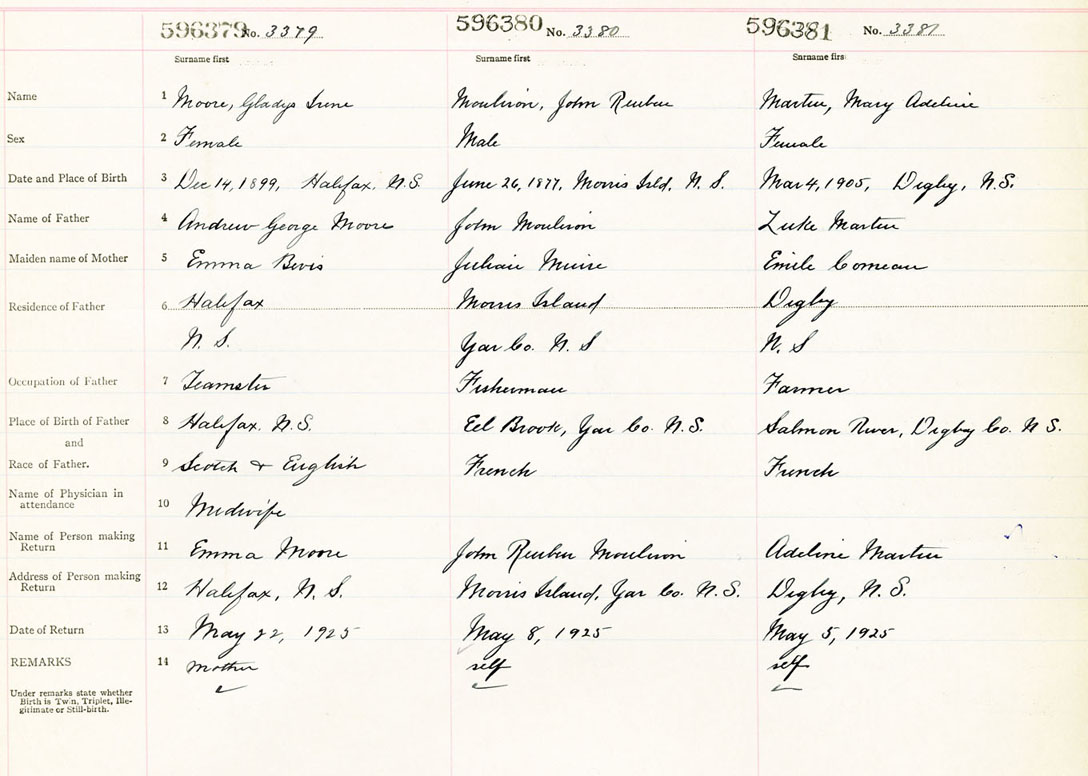 596379 No. 3379 596380 No. 3380 596381 No. 3381
Surname first Surname first Surname first
Name 1 Moore, Gladys Irene Moulison, John Reuben Martin, Mary Adeline
Sex 2 Female Male Female
Date and Place of Birth 3 Dec 14, 1899, Halifax, N.S. June 26, 1877, Morris Isld, N.S. Mar 4, 1905, Digby, N.S.
Name of Father 4 Andrew George Moore John Moulison Luke Martin
Maiden name of Mother 5 Emma Bevis Julian Muise Emile Comeau
Residence of Father 6 Halifax Morris Island Digby
N. S. Yar Co. N. S N. S
Occupation of Father 7 Teamster Fisherman Farmer
Place of Birth of Father 8 Halifax. N.S. Eel Brook, Yar Co. N.S. Salmon River, Digby Co. N.S.
and
Race of Father. 9 Scotch & English French French
Name of Physician in
attendance 10 Midwife
Name of Person making
Return 11 Emma Moore John Reuben Moulison Adeline Martin
Address of Person making
Return 12 Halifax, N. S. Morris Island, Yar Co. N.S. Digby, N.S.
Date of Return 13 May 22, 1925 May 8, 1925 May 5, 1925
REMARKS 14 mother self self
Under remarks state whether
Birth is Twin, Triplet, Ille-
gitimate or Still-birth.